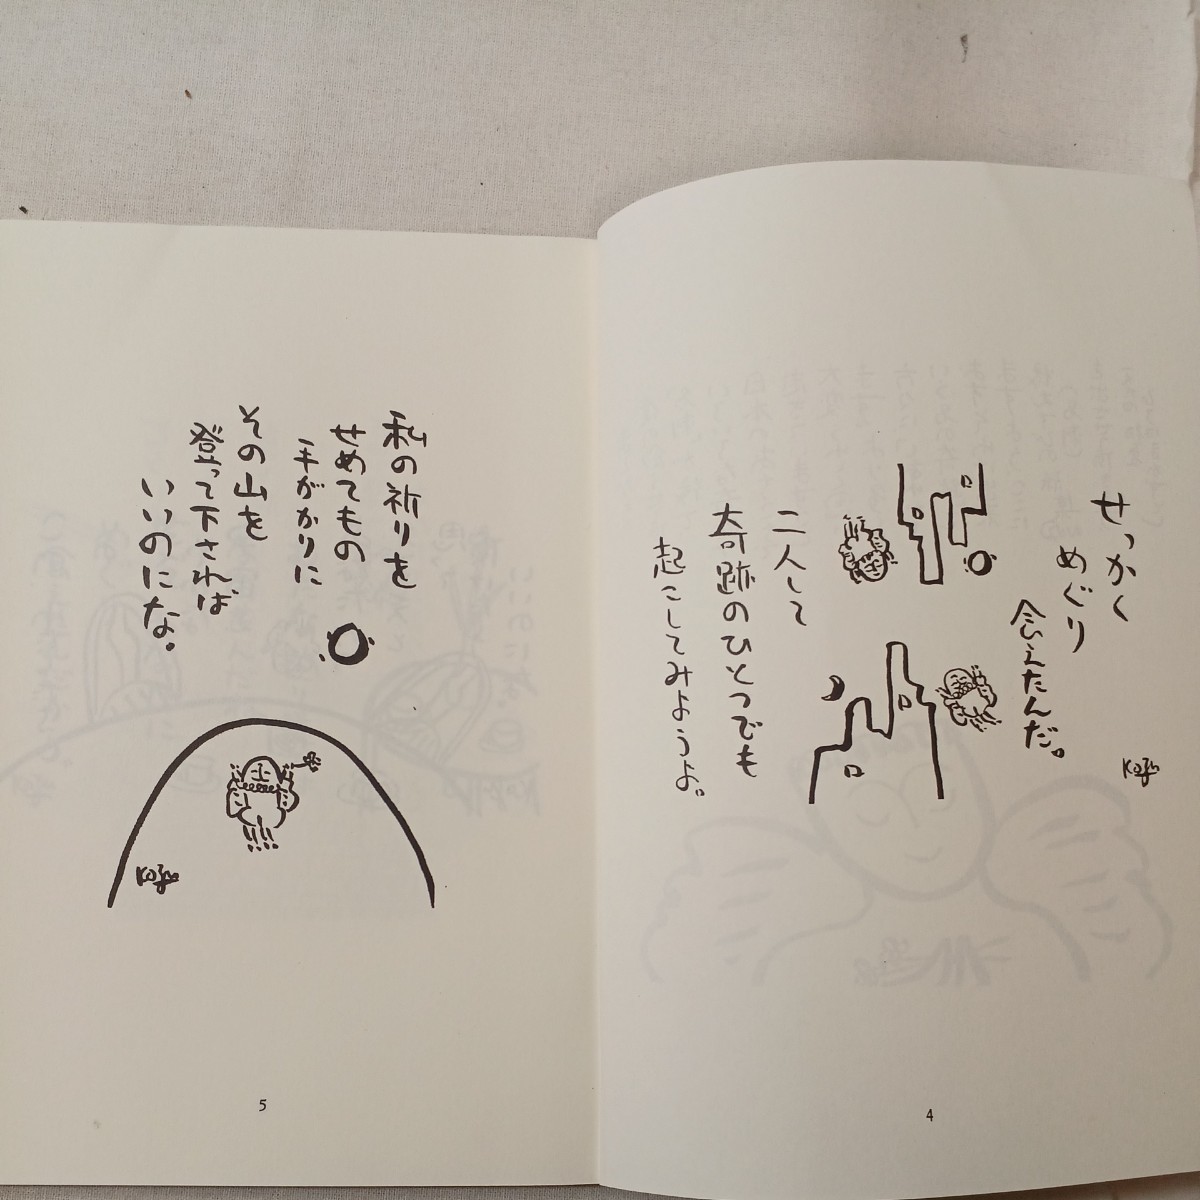 せっかく
めぐり
会えたんだ。
二人して
奇跡のひとつでも
起こしてみようよ。
Kozu
4
私の祈りを
せめてもの
手がかりに
その山を
登って下されば
いいのにな。
5